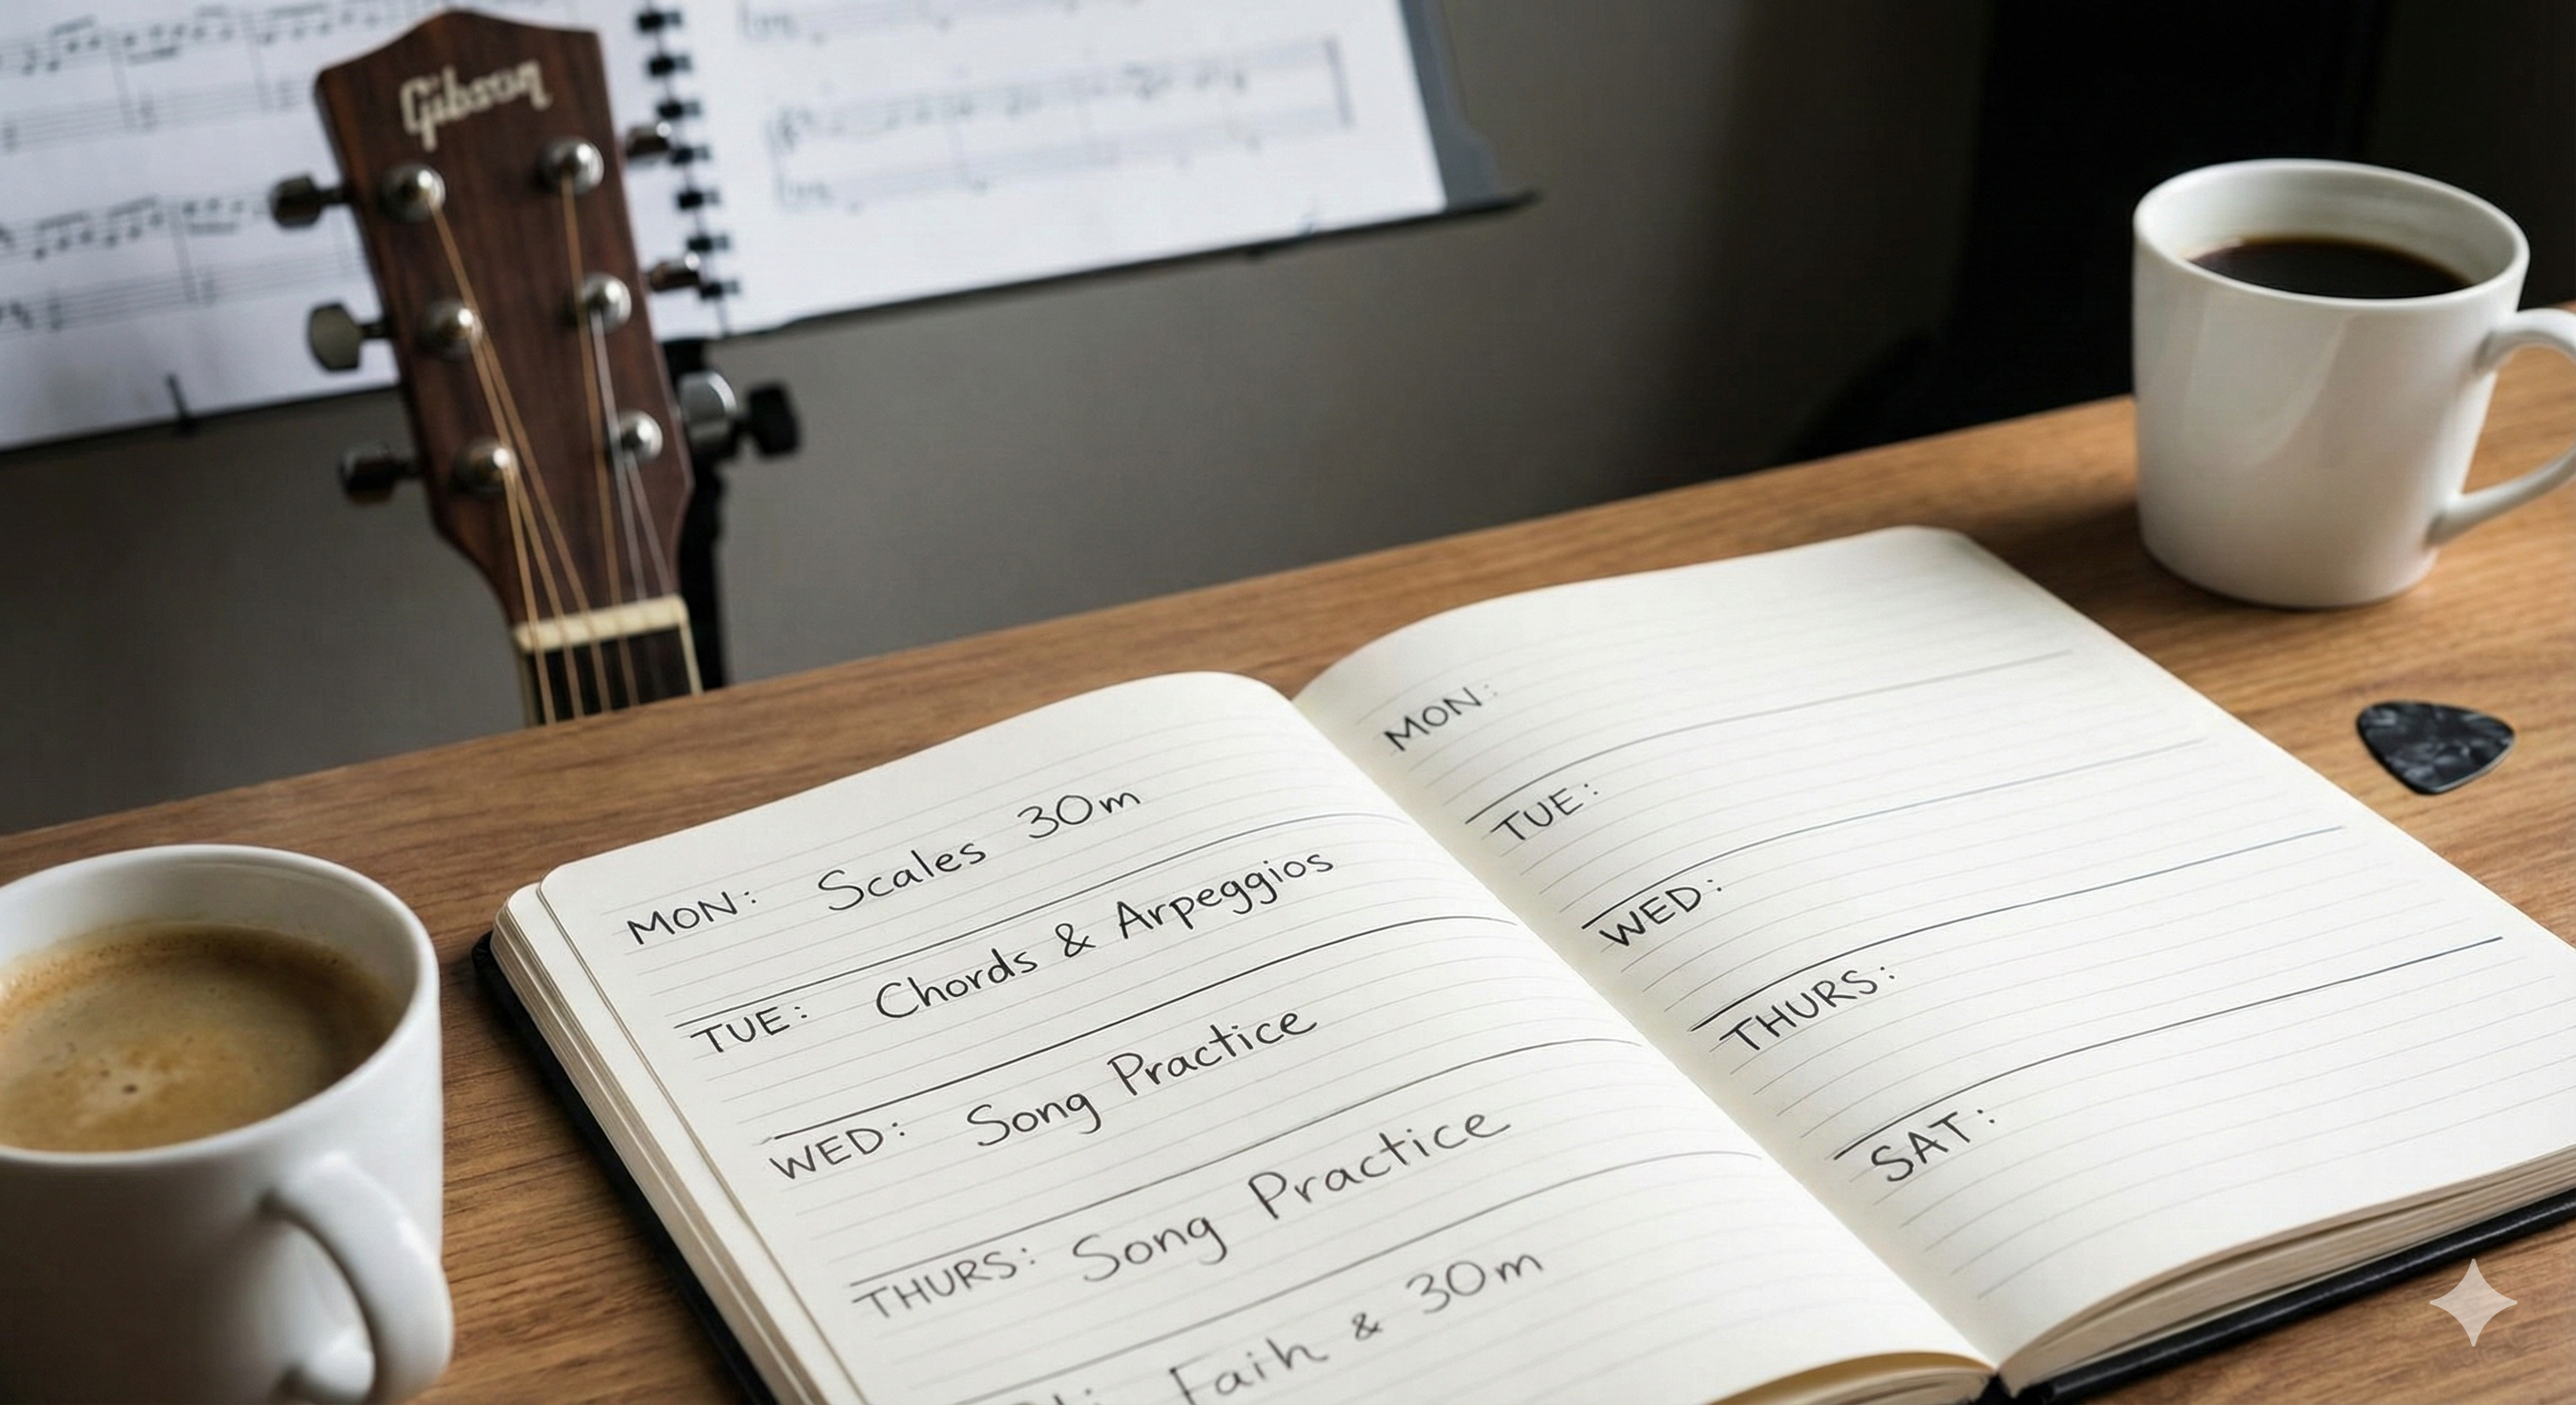 Gibson
MON: Scales 30m
TUE: Chords & Arpeggios
WED: Song Practice
THURS: Song Practice
Faih & 30m
MON:
TUE:
WED:
THURS:
SAT: